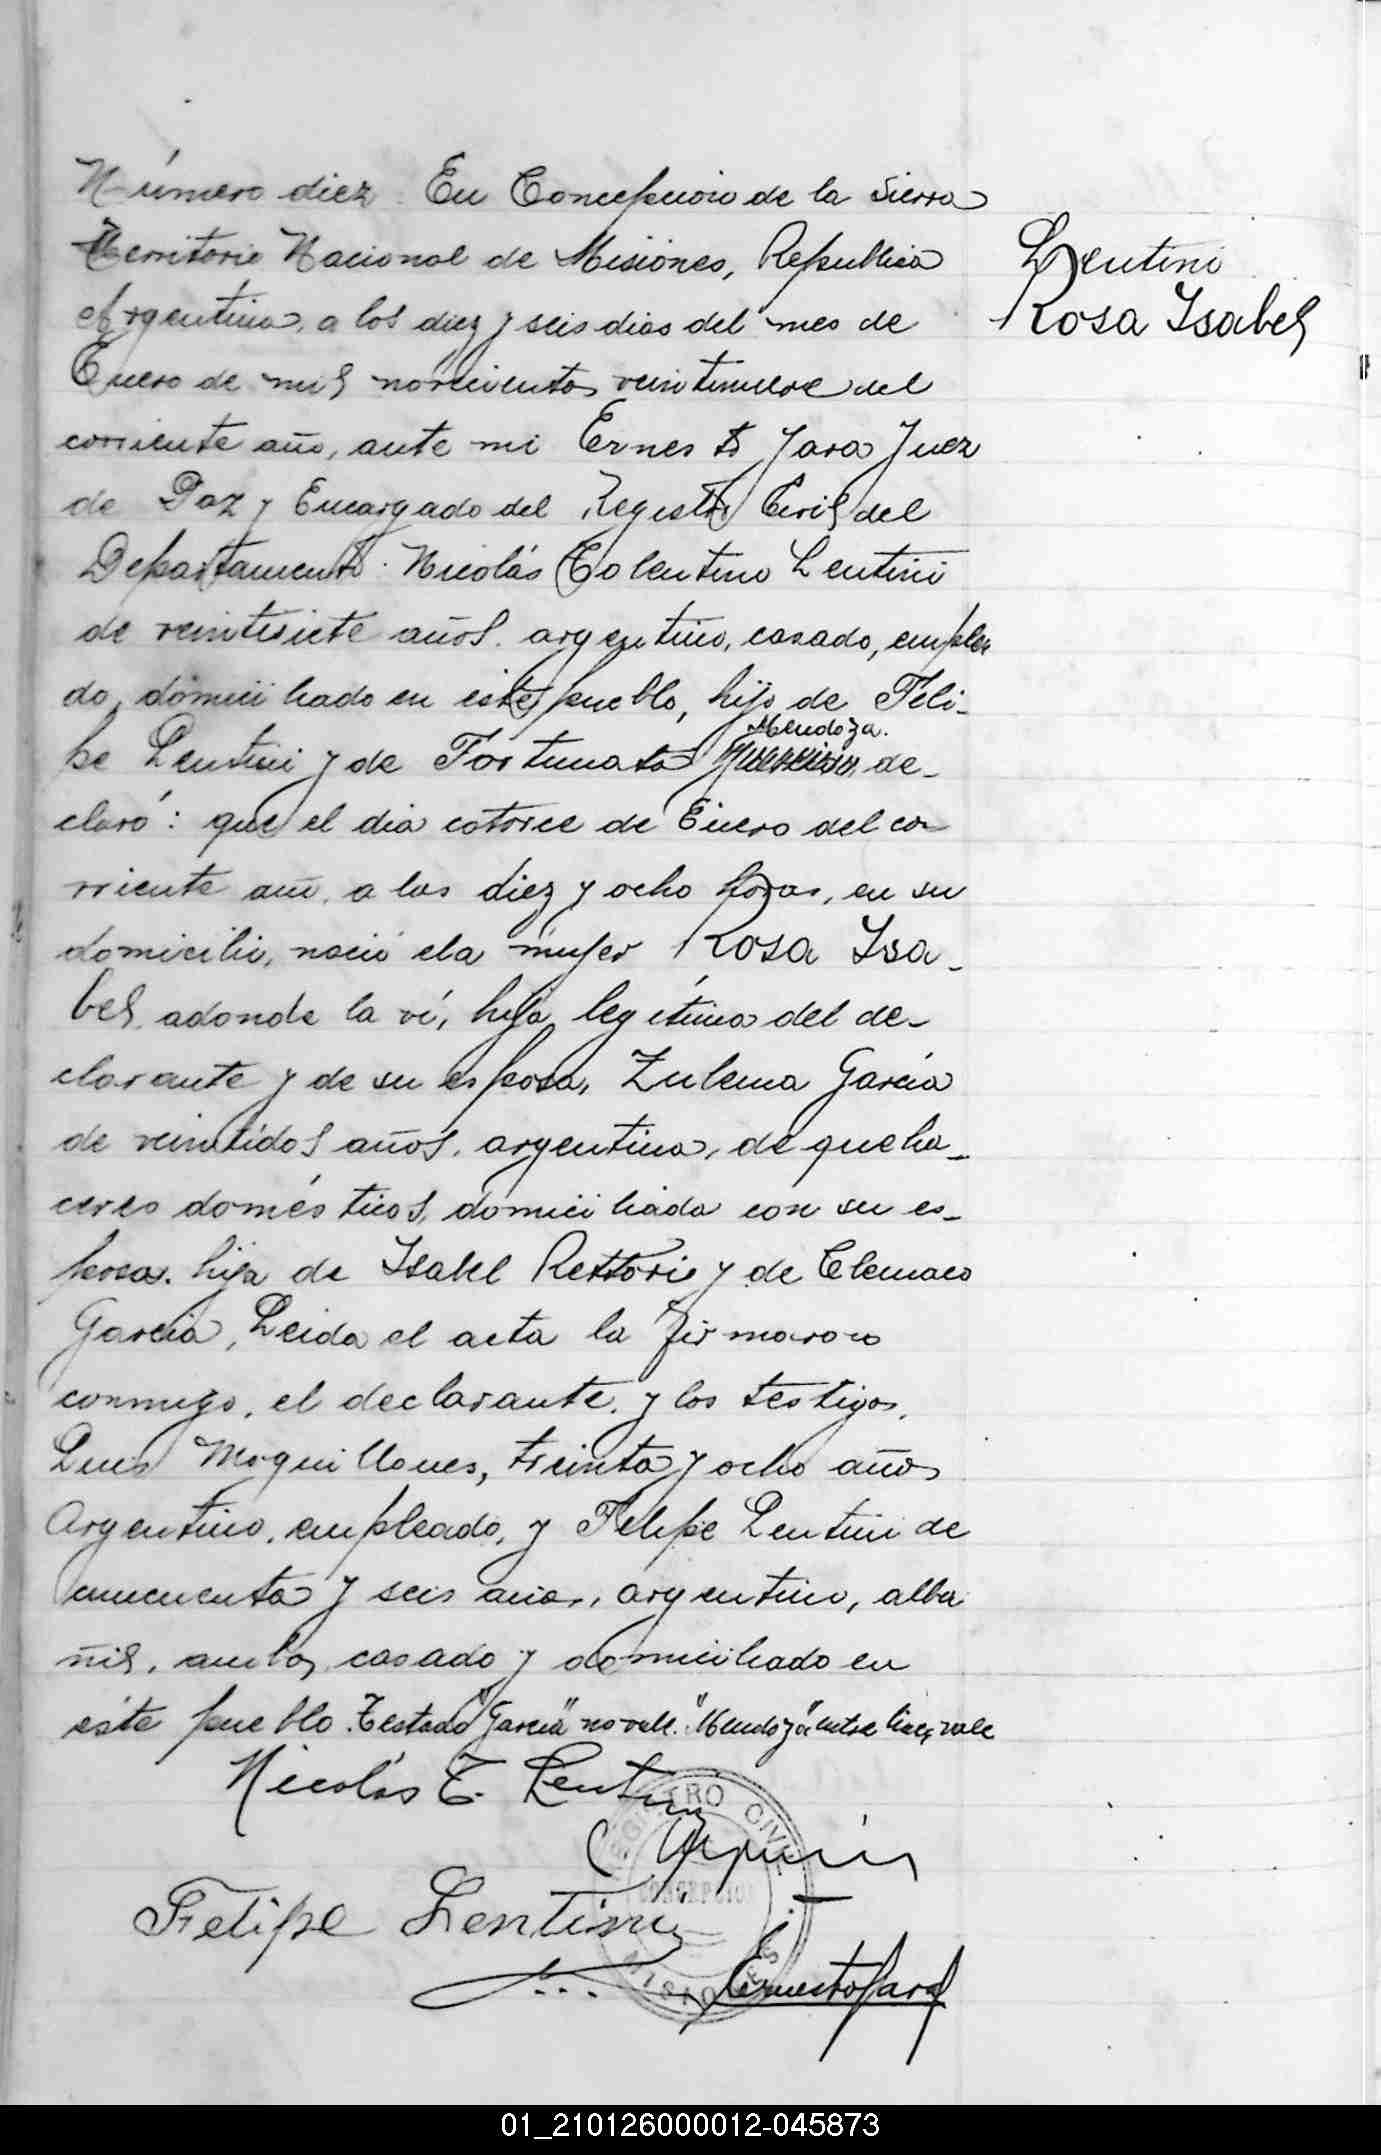 Número diez. En Concepcion de la Sierra
Territorio Nacional de Misiones, Republica
Argentina, a los diez y seis dias del mes de
Enero de mil novecientos veintinueve del
corriente año, ante mi Ernesto Jara Juez
de Paz y Encargado del Registro Civil del
Departamento. Nicolás Tolentino Lentini
de veintisiete años, argentino, casado, emplea
do, domiciliado en este pueblo, hijo de Feli-
pe Lentini y de Fortunata Mendoza. de-
claró: que el dia catorce de Enero del co-
rriente año, a las diez y ocho horas, en su
domicilio, nació ela mujer Rosa Isa-
bel, adonde la ví, hija legítima del de-
clarante y de su esposa, Zulema García
de veintidos años, argentina, de queha-
ceres domésticos, domiciliada con su es-
poso, hija de Isabel Rettori y de Clemaco
Garcia, Leida el acta la firmaron
conmigo, el declarante, y los testigos,
Luis Moquillones, treinta y ocho años
Argentino, empleado, y Felipe Lentini de
cincuenta y seis años, argentino, alba
ñil, ambos casado y domiciliado en
este pueblo. Testado "García" no vale. "Mendoza" entre lineas vale
Nicolás T. Lentini
Felipe Lentini
Ernesto Jara
Lentini
Rosa Isabel
REGISTRO CIVIL
CONCEPCION
MISIONES
01_210126000012-045873